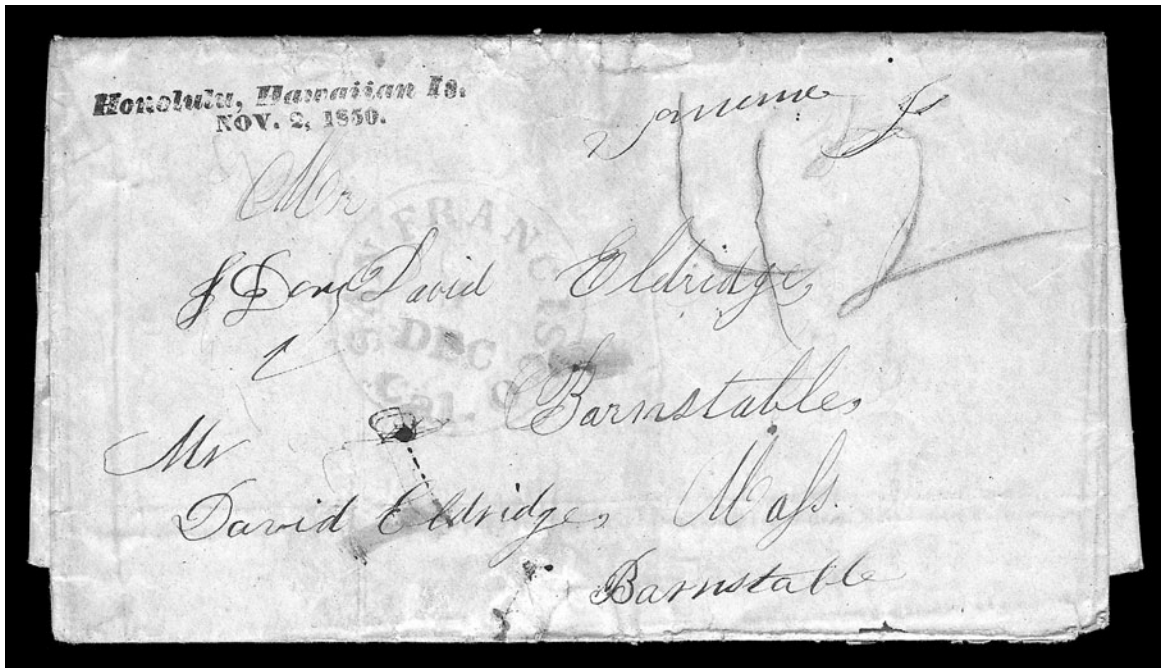 Honolulu, Hawaiian Is.
NOV. 2, 1850.
42
Mr
David Eldridge,
SAN FRANCISCO
DEC
Cal.
Barnstable,
Mr
David Eldridge, Mass.
Barnstable